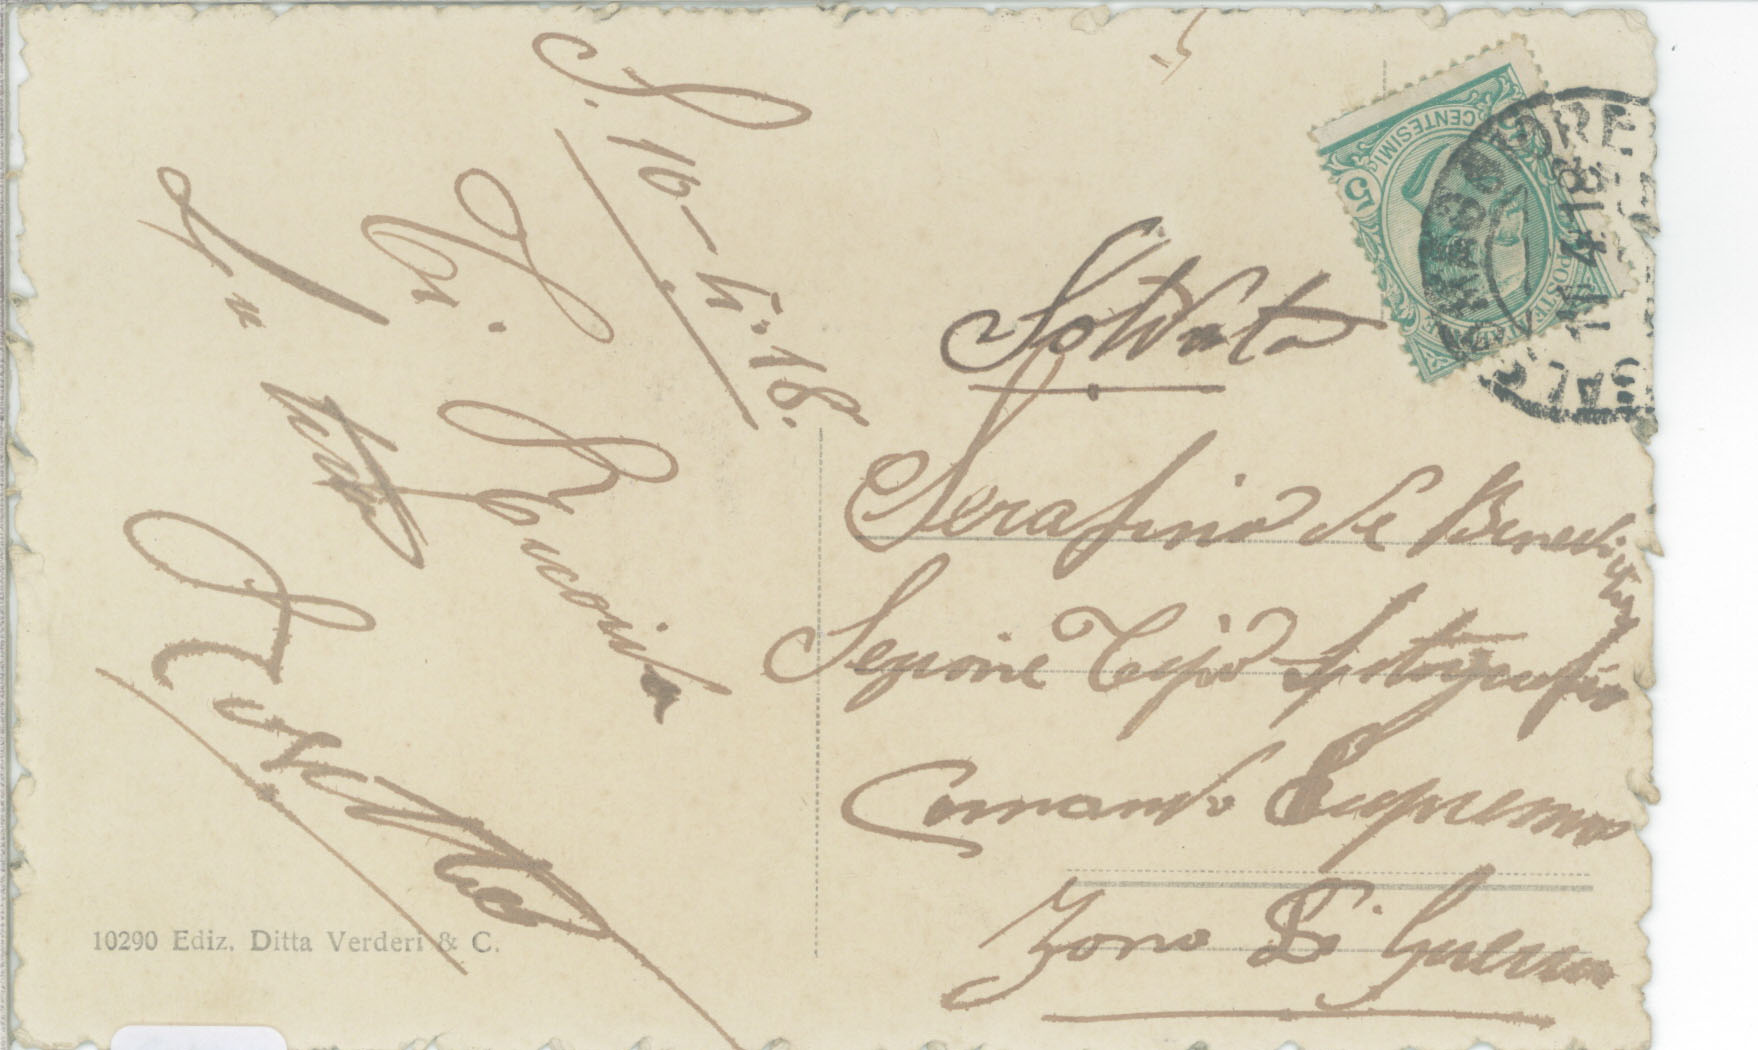 S. 16-4-18.
Ti Ricorda
La tua
Rosetta
Soldato
Serafino de Benedictis
Sezione Tipo fotografica
Comando Supremo
Zona Di Guerra
5 CENTESIMI
POSTE
11 4 18
10290 Ediz. Ditta Verderi & C.